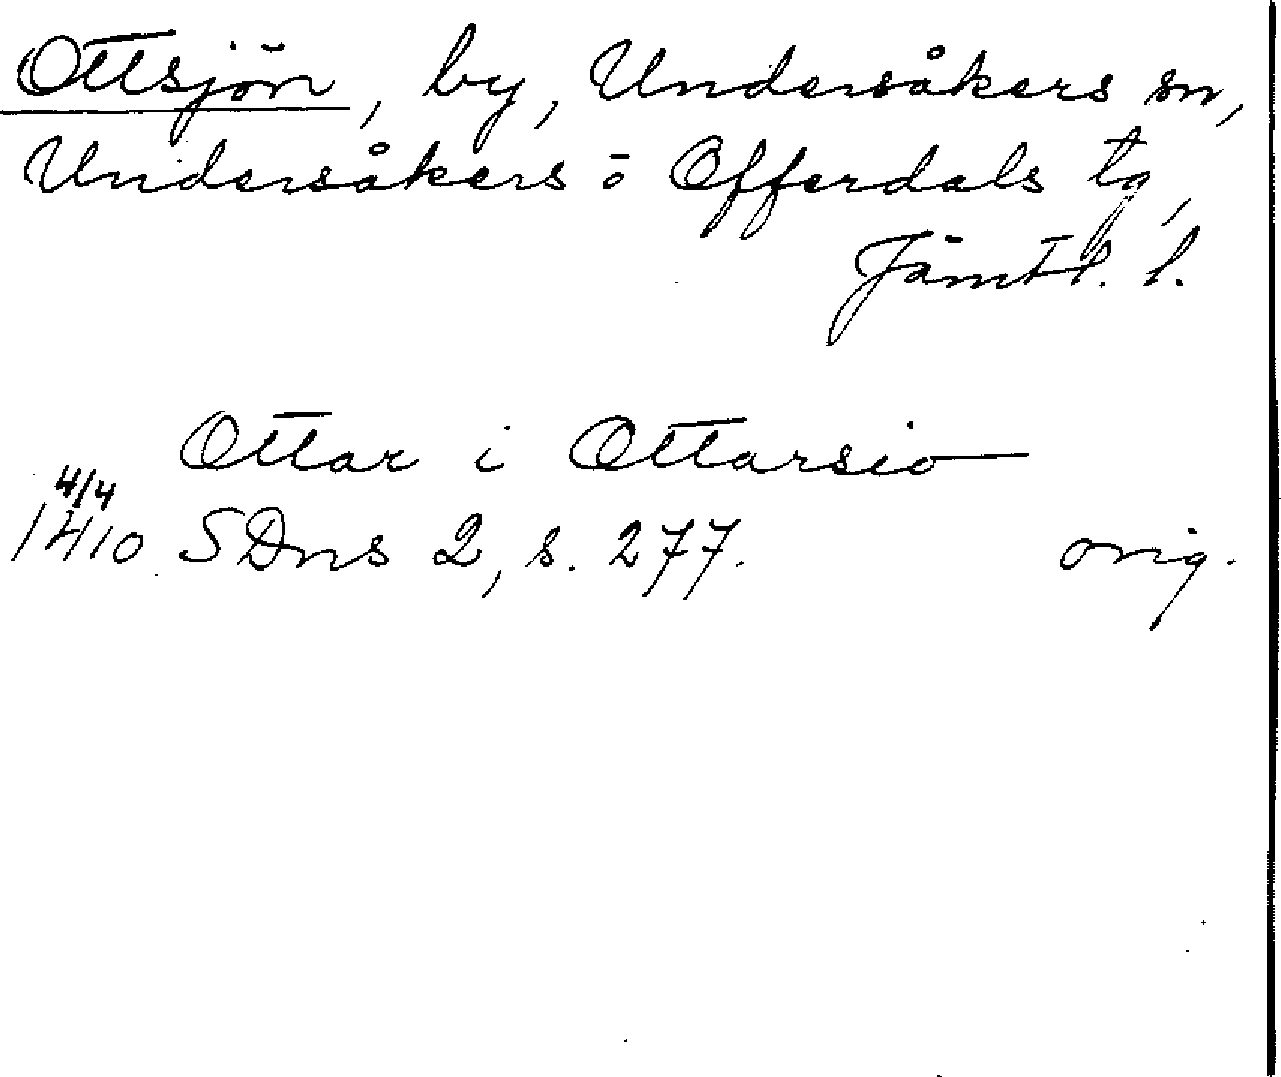 Ottsjön, by, Undersåkers sn,
Undersåkers o Offerdals tg,
Jämtl. l.
Ottar i Ottarsio
4/4
1410 SDns 2, s. 277. orig.